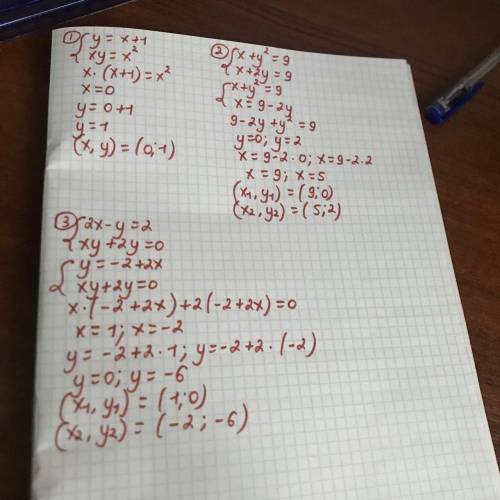 ① { y = x+1
xy = x²
x·(x+1) = x²
x=0
y = 0+1
y=1
(x, y) = (0;1)
② { x+y² = 9
x+2y = 9
{ x+y² = 9
x = 9-2y
9-2y+y² = 9
y=0; y=2
x=9-2·0; x=9-2·2
x = 9; x=5
(x₁, y₁) = (9;0)
(x₂, y₂) = (5;2)
③ { 2x-y=2
xy+2y=0
{ y = -2+2x
xy+2y=0
x·(-2+2x)+2(-2+2x)=0
x=1; x=-2
y = -2+2·1; y=-2+2·(-2)
y=0; y=-6
(x₁, y₁) = (1;0)
(x₂, y₂) = (-2; -6)